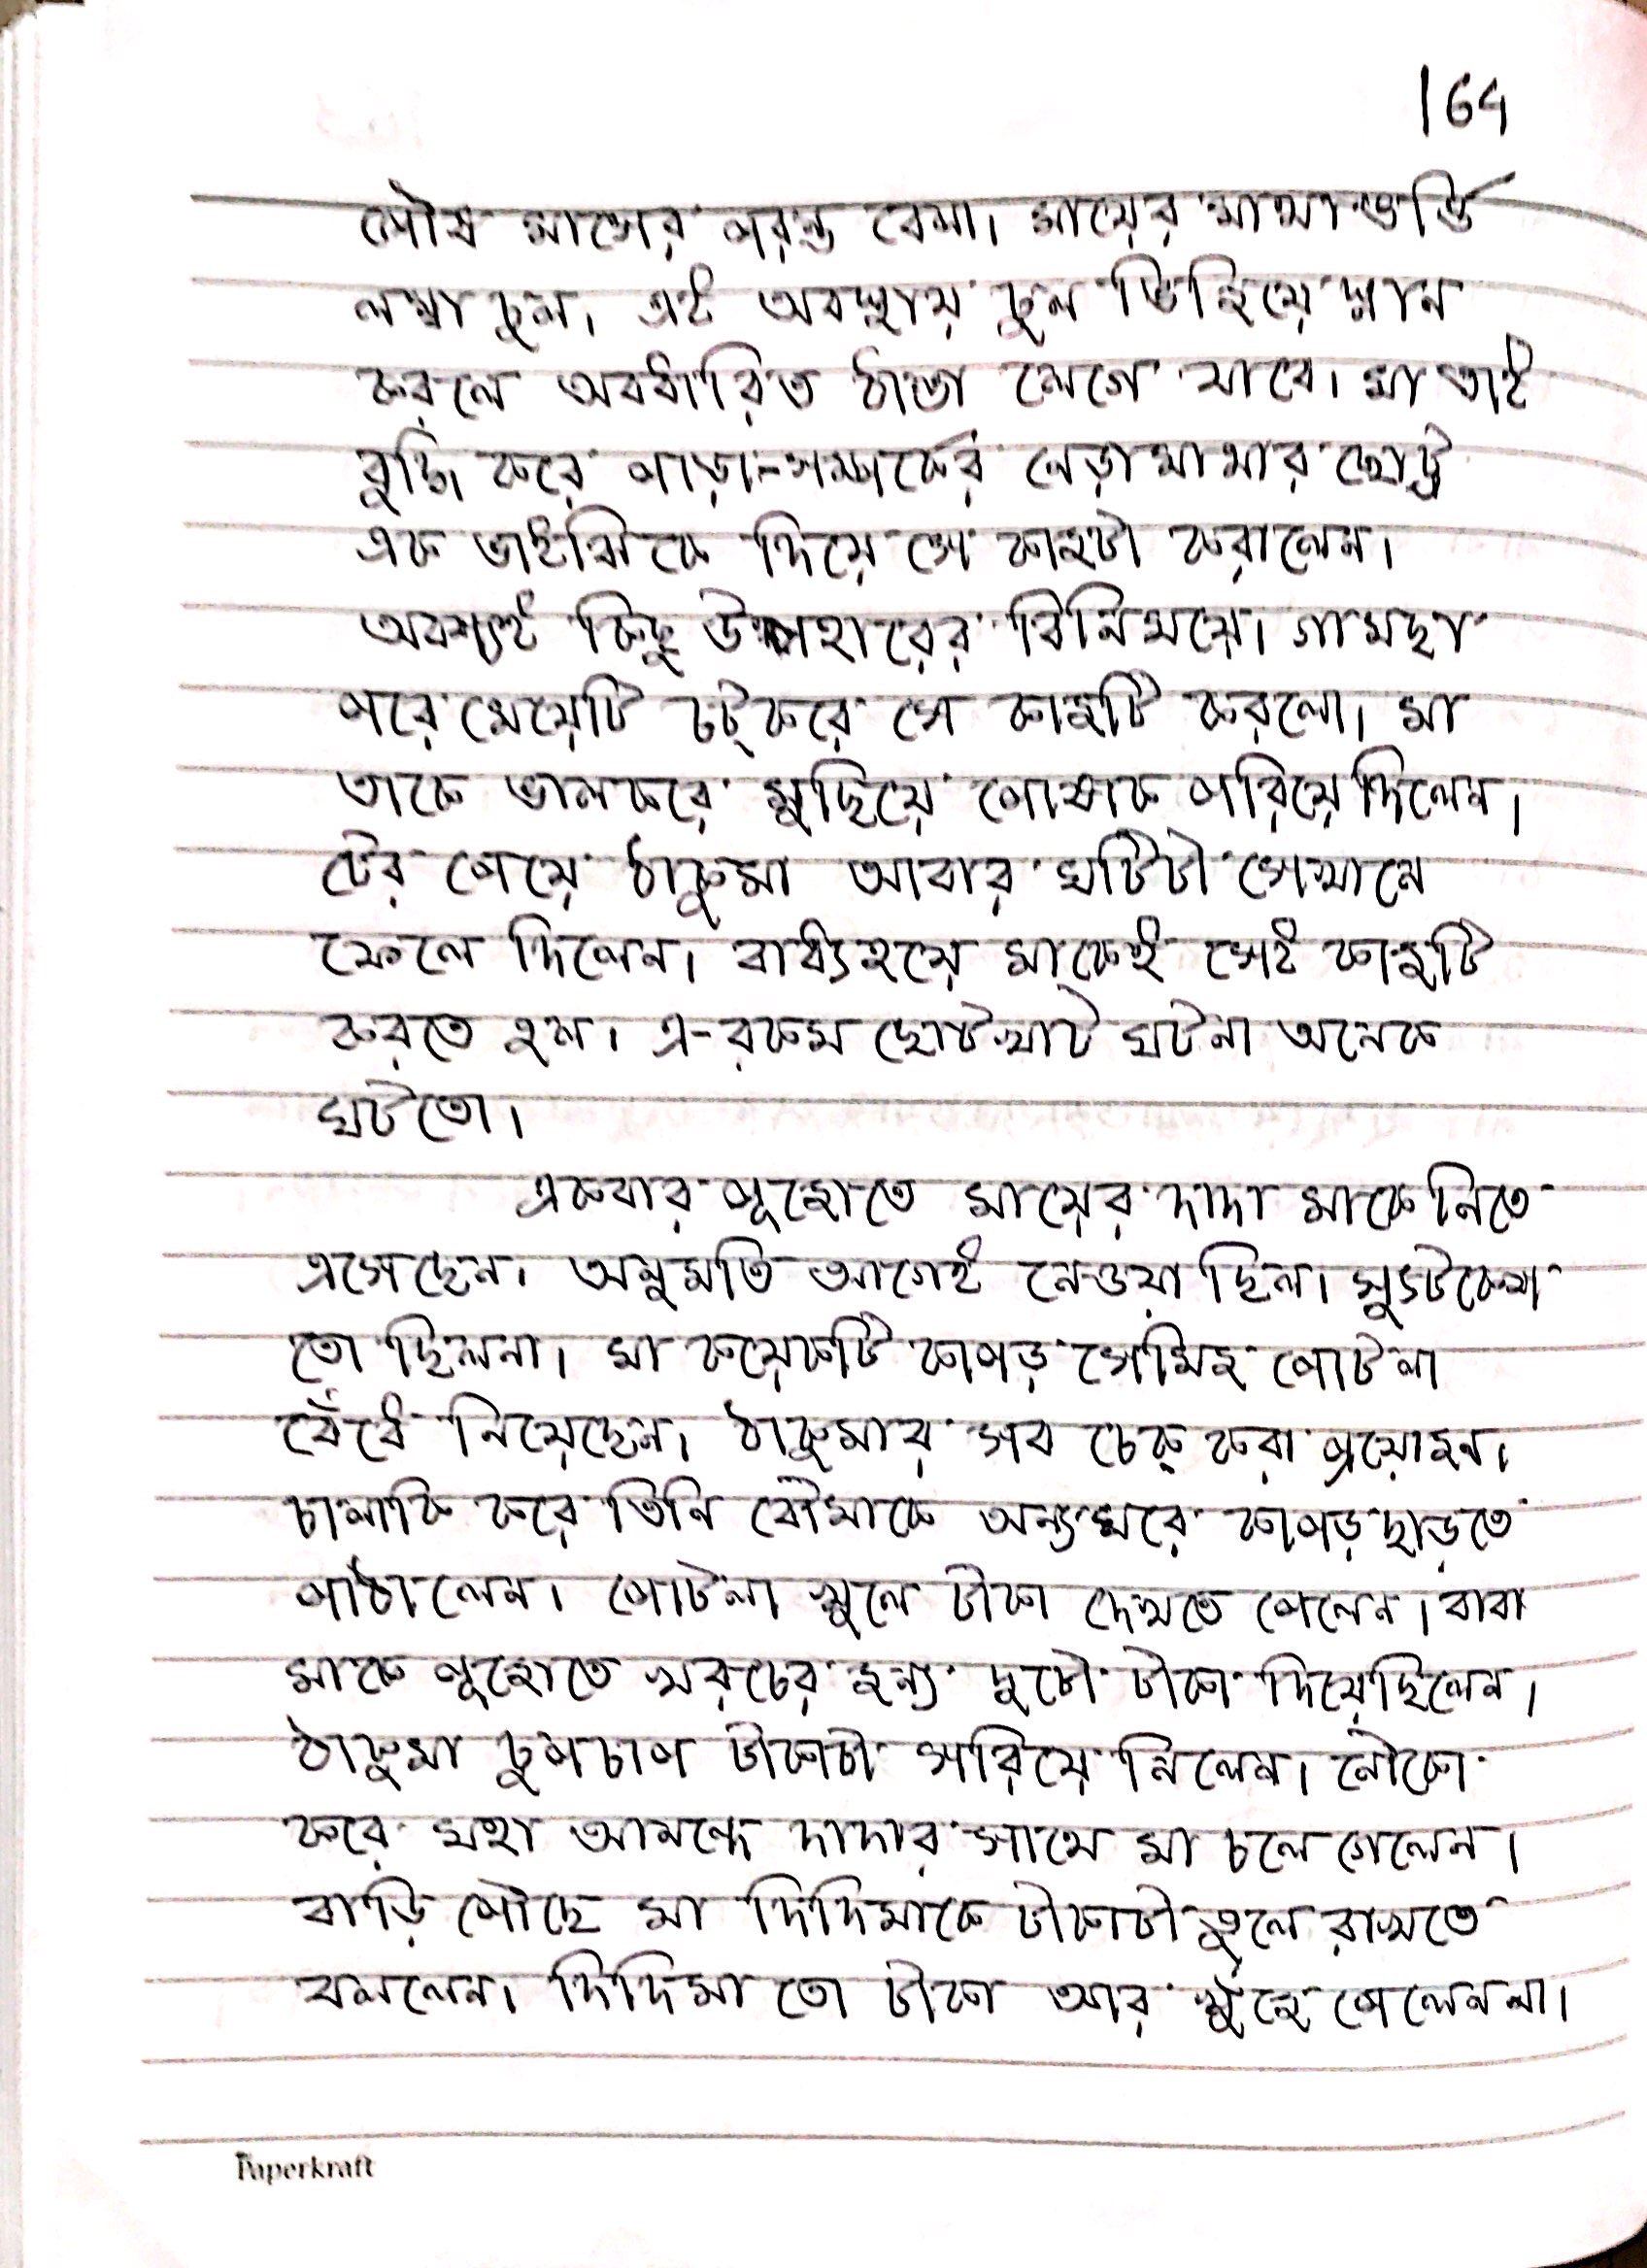 164
পৌষ মাসের পরন্ত বেলা। মায়ের মাথা ভর্তি
লম্বা চুল। এই অবস্থায় চুল ভিজিয়ে স্নান
করলে অবধারিত ঠান্ডা লেগে যাবে। মা তাই
বুদ্ধি করে পাড়া-সম্পর্কের নেড়া মামার ছোট্ট
এক ভাইঝিকে দিয়ে সে কাজটা করালেন।
অবশ্যই কিছু উপহারের বিনিময়ে। গামছা
পরে মেয়েটি চট্ করে সে কাজটি করলো। মা
তাকে ভালকরে মুছিয়ে পোষাক পরিয়ে দিলেন।
টের পেয়ে ঠাকুমা আবার ঘটিটা সেখানে
ফেলে দিলেন। বাধ্যহয়ে মাকেই সেই কাজটি
করতে হল। এ-রকম ছোটখাট ঘটনা অনেক
ঘটতো।
একবার পূজোতে মায়ের দাদা মাকে নিতে
এসেছেন। অনুমতি আগেই নেওয়া ছিল। স্যুটকেশ
তো ছিলনা। মা কয়েকটি কাপড় সেমিজ পোটলা
বেঁধে নিয়েছেন। ঠাকুমার সব চেক্ করা প্রয়োজন।
চালাকি করে তিনি বৌমাকে অন্যঘরে কাপড় ছাড়তে
পাঠালেন। পোটলা খুলে টাকা দেখতে পেলেন। বাবা
মাকে পূজোতে খরচের জন্য দুটো টাকা দিয়েছিলেন।
ঠাকুমা চুপচাপ টাকাটা সরিয়ে নিলেন। নৌকো
করে মহা আনন্দে দাদার সাথে মা চলে গেলেন।
বাড়ি পৌছে মা দিদিমাকে টাকাটা তুলে রাখতে
বললেন। দিদিমা তো টাকা আর খুঁজে পেলেননা।
Paperkraft